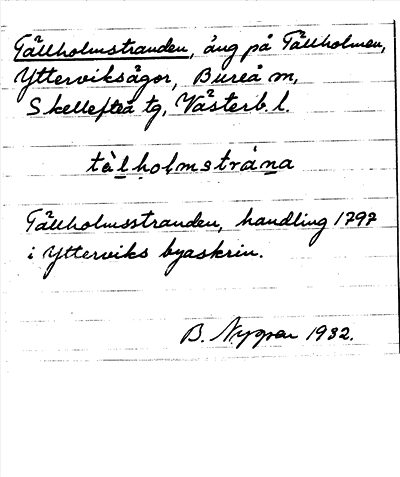 Tällholmstranden, äng på Tällholmen,
Ytterviksägor, Bureå m,
Skellefteå tg, Västerb. l.
tälholmstråna
Tällholmsstranden, handling 1797
i Ytterviks byaskrin.
B. Nygren 1932.